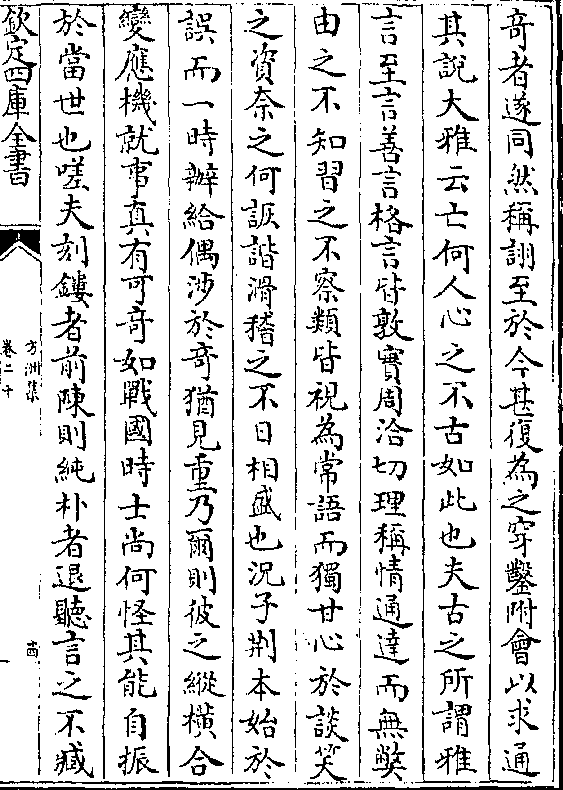 奇者遂同然稱詡至於今甚復為之穿鑿附會以求通
其說大雅云亡何人心之不古如此也夫古之所謂雅
言至言善言格言皆敦實周洽切理稱情通達而無弊
由之不知習之不察類皆視為常語而獨甘心於談笑
之資奈之何詼諧滑稽之不日相盛也況子荆本始於
誤而一時辦給偶涉於奇猶見重乃爾則彼之縱橫合
變應機就事真有可奇如戰國時士尚何怪其能自振
於當世也嗟夫刻鏤者前陳則純朴者退聽言之不臧
欽定四庫全書
方洲集
卷二十